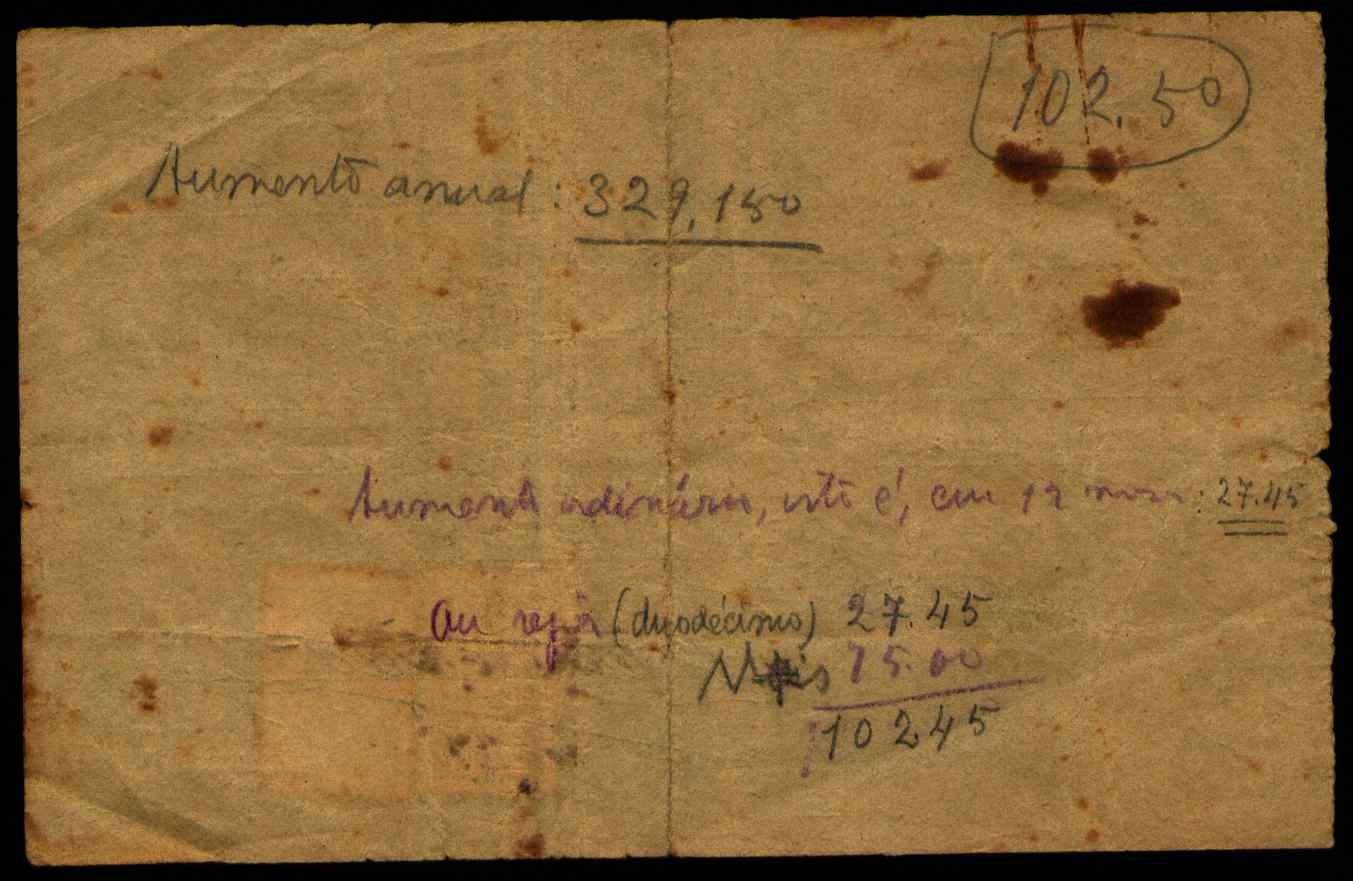 102.50
Aumento anual: 329,150
Aumento ordinário, isto é, em 12 meses: 27.45
ou seja (duodécimo) 27.45
Mais 75.00
102 45